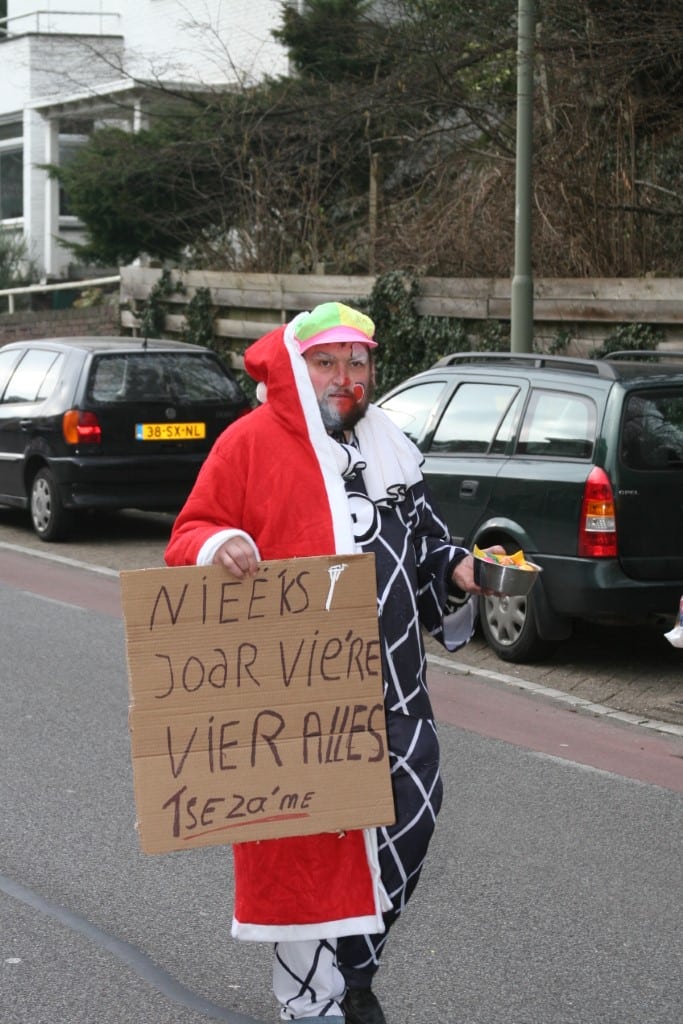 38-SX-NL
OPEL
NIEËKS
JOAR VIE'RE
VIER ALLES
TSEZA'ME